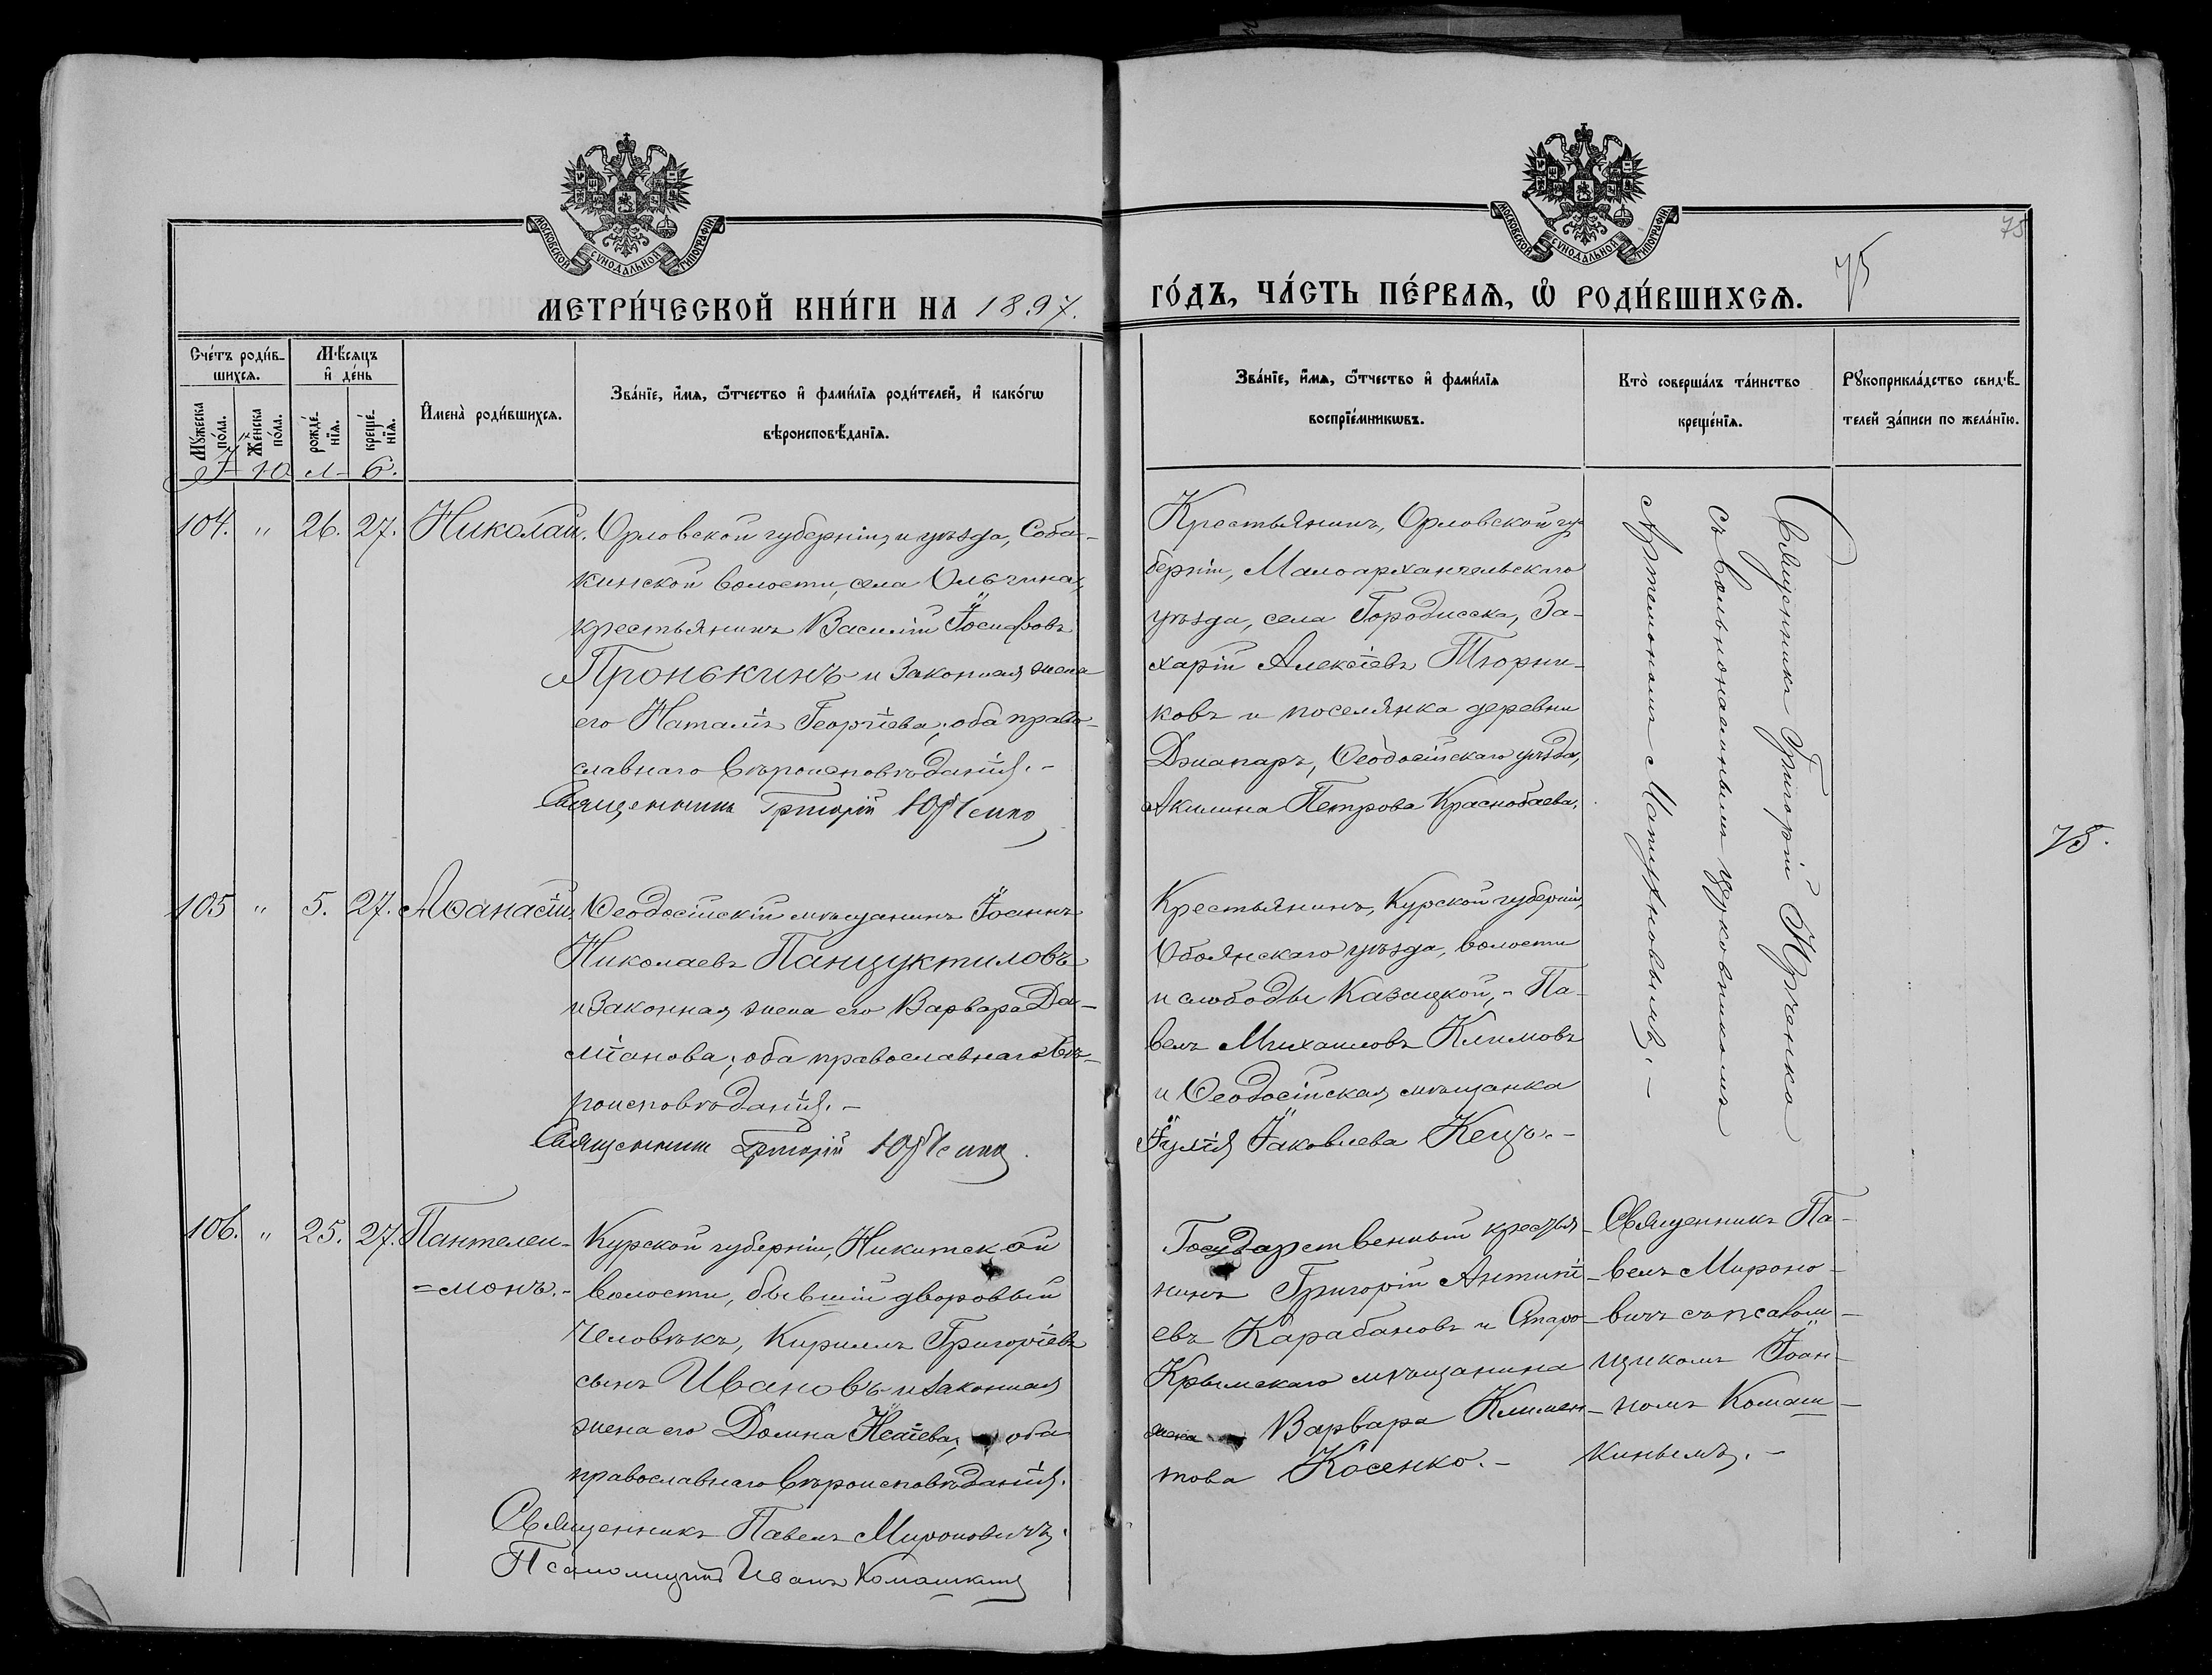 75
МОСКОВСКОЙ СУНОДАЛЬНОЙ ТИПОГРАФІИ
МОСКОВСКОЙ СУНОДАЛЬНОЙ ТИПОГРАФІИ
МЕТРИ́ЧЕСКОЙ КНИ́ГИ НА 1897.
ГО́ДЪ, ЧА́СТЬ ПЕ́РВАѦ, Ѡ РОДИ́ВШИХСѦ.
75
Сче́тъ роди́в-
шихсѧ.
Мѣ́сѧцъ
и҆ де́нь
Мꙋжеска
пола.
Же́нска
по́ла.
рожде́-
нїѧ.
креще́-
нїѧ.
И҆мена̀ роди́вшихсѧ.
Зва́нїе, и҆́мѧ, ѻ҆́тчество и҆ фами́лїѧ роди́телей, и҆ како́гѡ
вѣроисповѣ́данїѧ.
Зва́нїе, и҆́мѧ, ѻ҆́тчество и҆ фами́лїѧ
воспрїе́мникѡвъ.
Кто̀ соверша́лъ та́инство
креще́нїѧ.
Рꙋкоприкла́дство свидѣ́-
телей за́писи по жела́нїю.
І ю л ь.
104. " 26. 27. Николай.
Орловской губерніи, и уѣзда, Соба-
кинской волости, села Ольгина,
крестьянинъ Василій Іосифовъ
Пронькинъ и законная жена
его Наталія Георгіева; оба право-
славнаго вѣроисповѣданія.-
Священникъ Григорій Юрченко
Крестьянинъ, Орловской гу-
берніи, Малоархангельскаго
уѣзда, села Городисска, За-
харій Алексіевъ Тюрни-
ковъ и поселянка деревни
Джапаръ, Ѳеодосійскаго уѣзда,
Акилина Петрова Краснобаева.
Священникъ Григорій Юрченко
съ вольнонаемнымъ церковникомъ
Артемономъ Мацухновымъ.-
75.
105 " 5. 27. Аѳанасій
Ѳеодосійскій мѣщанинъ Іоаннъ
Николаевъ Панцуктиловъ
и законная жена его Варвара Да-
міанова; оба православнаго вѣ-
роисповѣданія.-
Священникъ Григорій Юрченко.
Крестьянинъ, Курской губерніи,
Обоянскаго уѣзда, волости
и слободы Казацкой,- Па-
велъ Михаиловъ Климовъ
и Ѳеодосійская мѣщанка
Іулія Іаковлева Кецъ.-
106. " 25. 27. Пантелеи-
=монъ.-
Курской губерніи, Никитской
волости, бывшій дворовый
человѣкъ, Кириллъ Григоріевъ
сынъ Ивановъ и законная
жена его Домна Исаіева, оба
православнаго вѣроисповѣданія.
Священникъ Павелъ Мироновичъ.
Псаломщикъ Иванъ Комашкинъ
Государственный крестья-
нинъ Григорій Антипі-
евъ Карабановъ и Старо-
Крымскаго мѣщанина
жена Варвара Климен-
това Косенко.-
Священникъ Па-
велъ Мироно-
вичъ съ псалом-
щикомъ Іоан-
номъ Комаш-
кинымъ.-